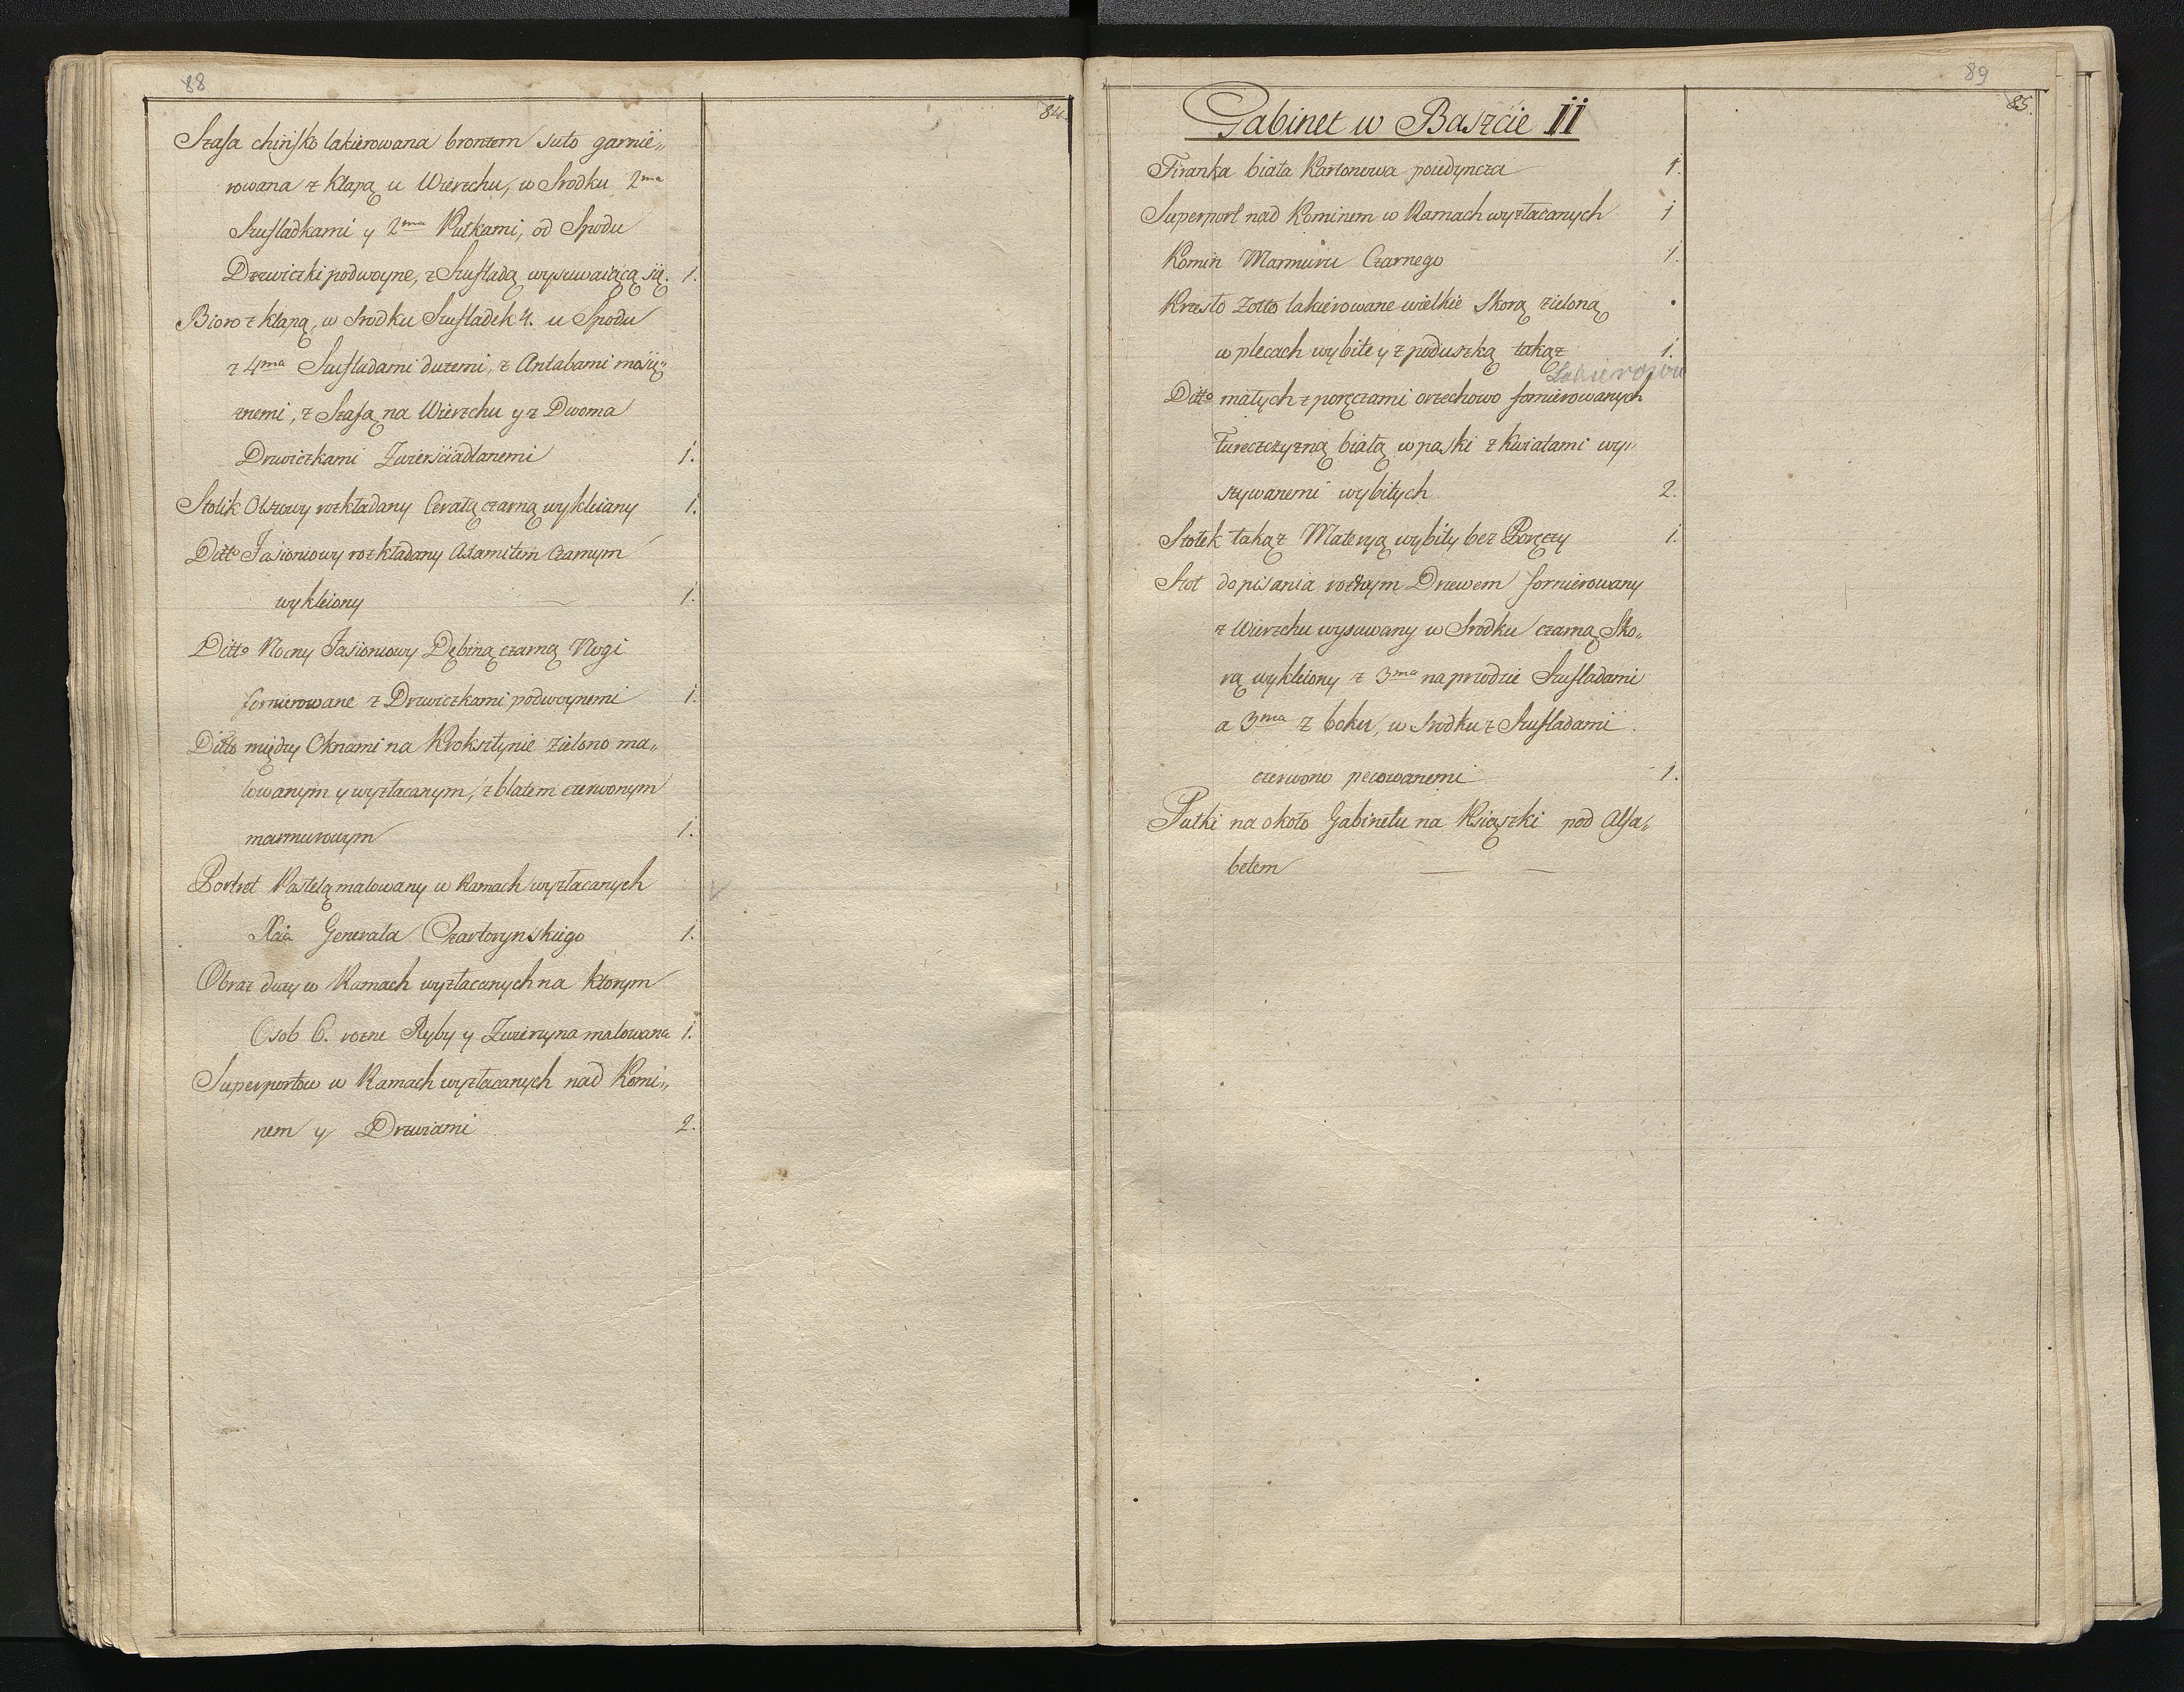 88
84.
Szafa chińsko lakierowana bronzem suto garnie„
rowana z Klapą u Wierzchu, w Srodku 2ma
Szufladkami y 2ma Pułkami, od Spodu
Drzwiczki podwoyne, z Szufladą wysuwaiącą się. 1.
Bioro z Klapą, w Srodku Szufladek 4. u Spodu
z 4ma Szufladami dużemi, z Antabami mosię„
żnemi, z Szafą na Wierzchu y z Dwoma
Drzwiczkami Zwierściadlanemi 1.
Stolik Olszowy rozkładany Ceratą czarną wykleiany 1.
Ditto Jasioniowy rozkładany Axamitem Czarnym
wykleiony 1.
Ditto Nocny Jasioniowy Dębiną czarną Nogi
fornierowane z Drzwiczkami podwoynemi 1.
Ditto między Oknami naRoksztynie zielono ma„
lowanym y wyzłacanym, z blatem czerwonym
marmurowym 1.
Portret Pastelą malowany w Ramach wyzłacanych
Xcia Generała Czartoryńskiego 1.
Obraz duży w Ramach wyzłacanych na ktorym
Osob 6. rozne Ryby y Zwierzyna malowana 1.
Superportow w Ramach wyzłacanych nad Komi„
nem y Drzwiami 2.
89
85.
Gabinet w Baszcie II
Firanka biała Kartonowa poiedyncza 1.
Superport nad Kominem w Ramach wyzłacanych 1
Komin Marmuru Czarnego 1.
Krzesło Zołto lakierowane wielkie Skorą zieloną
w plecach wybite y z poduszką takąż 1.
Lakierowan
Ditto małych z poręczami orzechowo fornierowanych
Tureczczyzną białą w paski z kwiatami wy„
szywanemi wybitych 2.
Stołek takąż Materyą wybity bez Poręczy 1.
Stoł do pisania rożnym Drzewem fornierowany
z Wierzchu wysuwany w Srodku czarną Sko„
rą wykleiony z 3ma na przodzie Szufladami
a 3ma z boku, w Srodku z Szufladami
czerwono pecowanemi 1.
Pułki na około Gabinetu na Ksiąszki pod Alfa„
betem